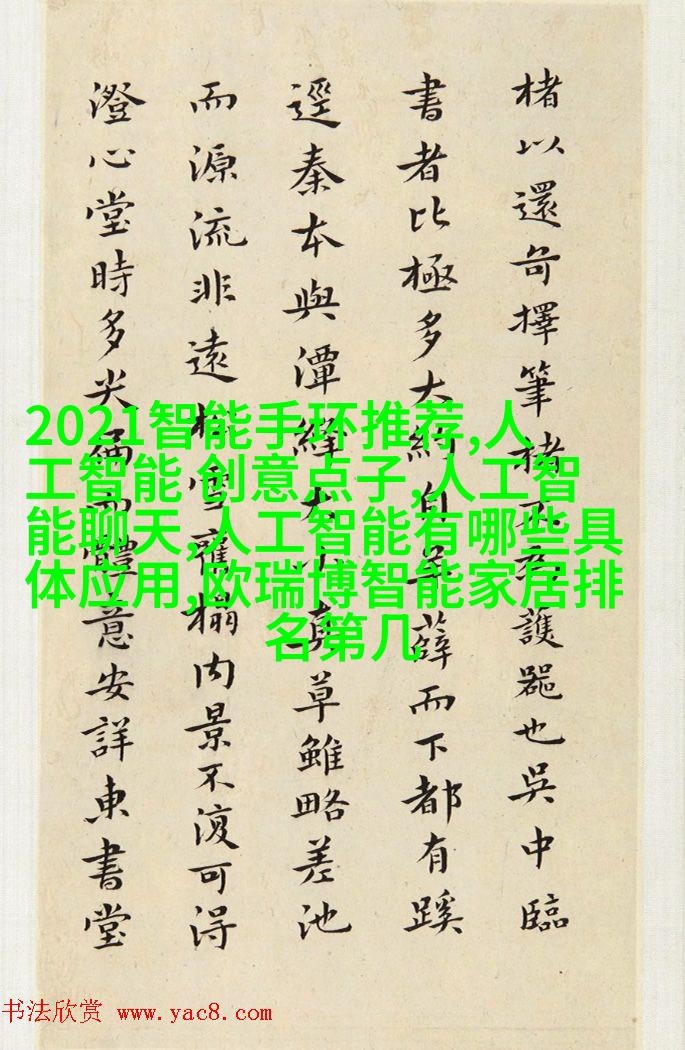 楮以還苛擇筆楮正為護器也吳中臨
書者比極多大約自羊薛而下都有蹊
逕秦本與潭絳大小真草雖略差池
而源流非遠松雪舊搨内景不復可得
澄心堂時多尖而體意安詳東書堂
2021智能手环推荐,人
工智能 创意点子,人工智
能聊天,人工智能有哪些具
体应用,欧瑞博智能家居排
名第几
书法欣赏 www.yac8.com